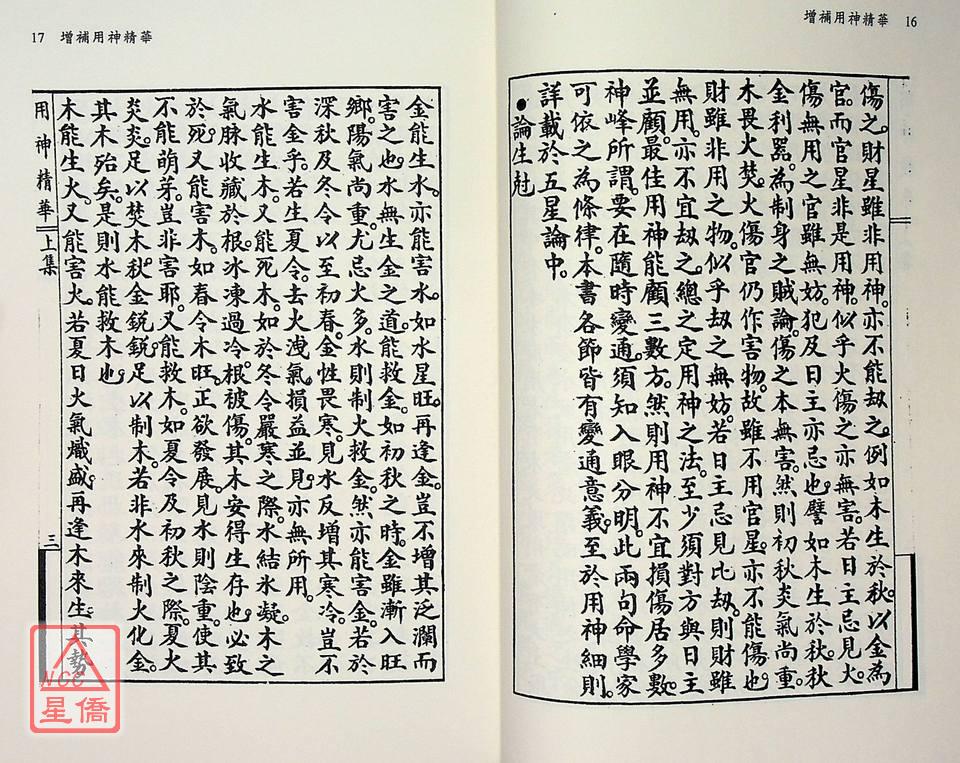 增補用神精華 16
傷之。財星雖非用神。亦不能劫之。例如木生於秋。以金為
官。而官星非是用神。似乎火傷之亦無害。若日主忌見火。
傷無用之官雖無妨。犯及日主亦忌也。譬如木生於秋。秋
金利器。為制身之賊。論傷之本無害。然則初秋炎氣尚重。
木畏火焚。火傷官仍作害物。故雖不用官星。亦不能傷也。
財雖非用之物。似乎劫之無妨。若日主忌見比劫。則財雖
無用。亦不宜劫之。總之定用神之法。至少須對方與日主
並顧。最佳用神能顧三數方。然則用神不宜損傷居多數。
神峰所謂。要在隨時變通。須知入眼分明。此兩句命學家
可依之為條律。本書各節皆有變通意義。至於用神細則。
詳載於五星論中。
●論生尅
17 增補用神精華
金能生水。亦能害水。如水星旺。再逢金。豈不增其泛瀾而
害之也。水無生金之道。能救金。如初秋之時。金雖漸入旺
鄉。陽氣尚重。尤忌火多。水則制火救金。然亦能害金。若於
深秋及冬令以至初春。金性畏寒。見水反增其寒冷。豈不
害金乎。若生夏令。去火洩氣。損益並見。亦無所用。
水能生木。又能死木。如於冬令嚴寒之際。水結氷凝。木之
氣脉收藏於根。冰凍過冷。根被傷。其木安得生存也。必致
於死。又能害木。如春令木旺。正欲發展。見水則陰重。使其
不能萌芽。豈非害耶。又能救木。如夏令及初秋之際。夏火
炎炎。足以焚木。秋金銳銳。足以制木。若非水來制火化金。
其木殆矣。是則水能救木也。
木能生火。又能害火。若夏日火氣熾盛。再逢木來生。其勢
用神精華 上集
三
NCC
星僑